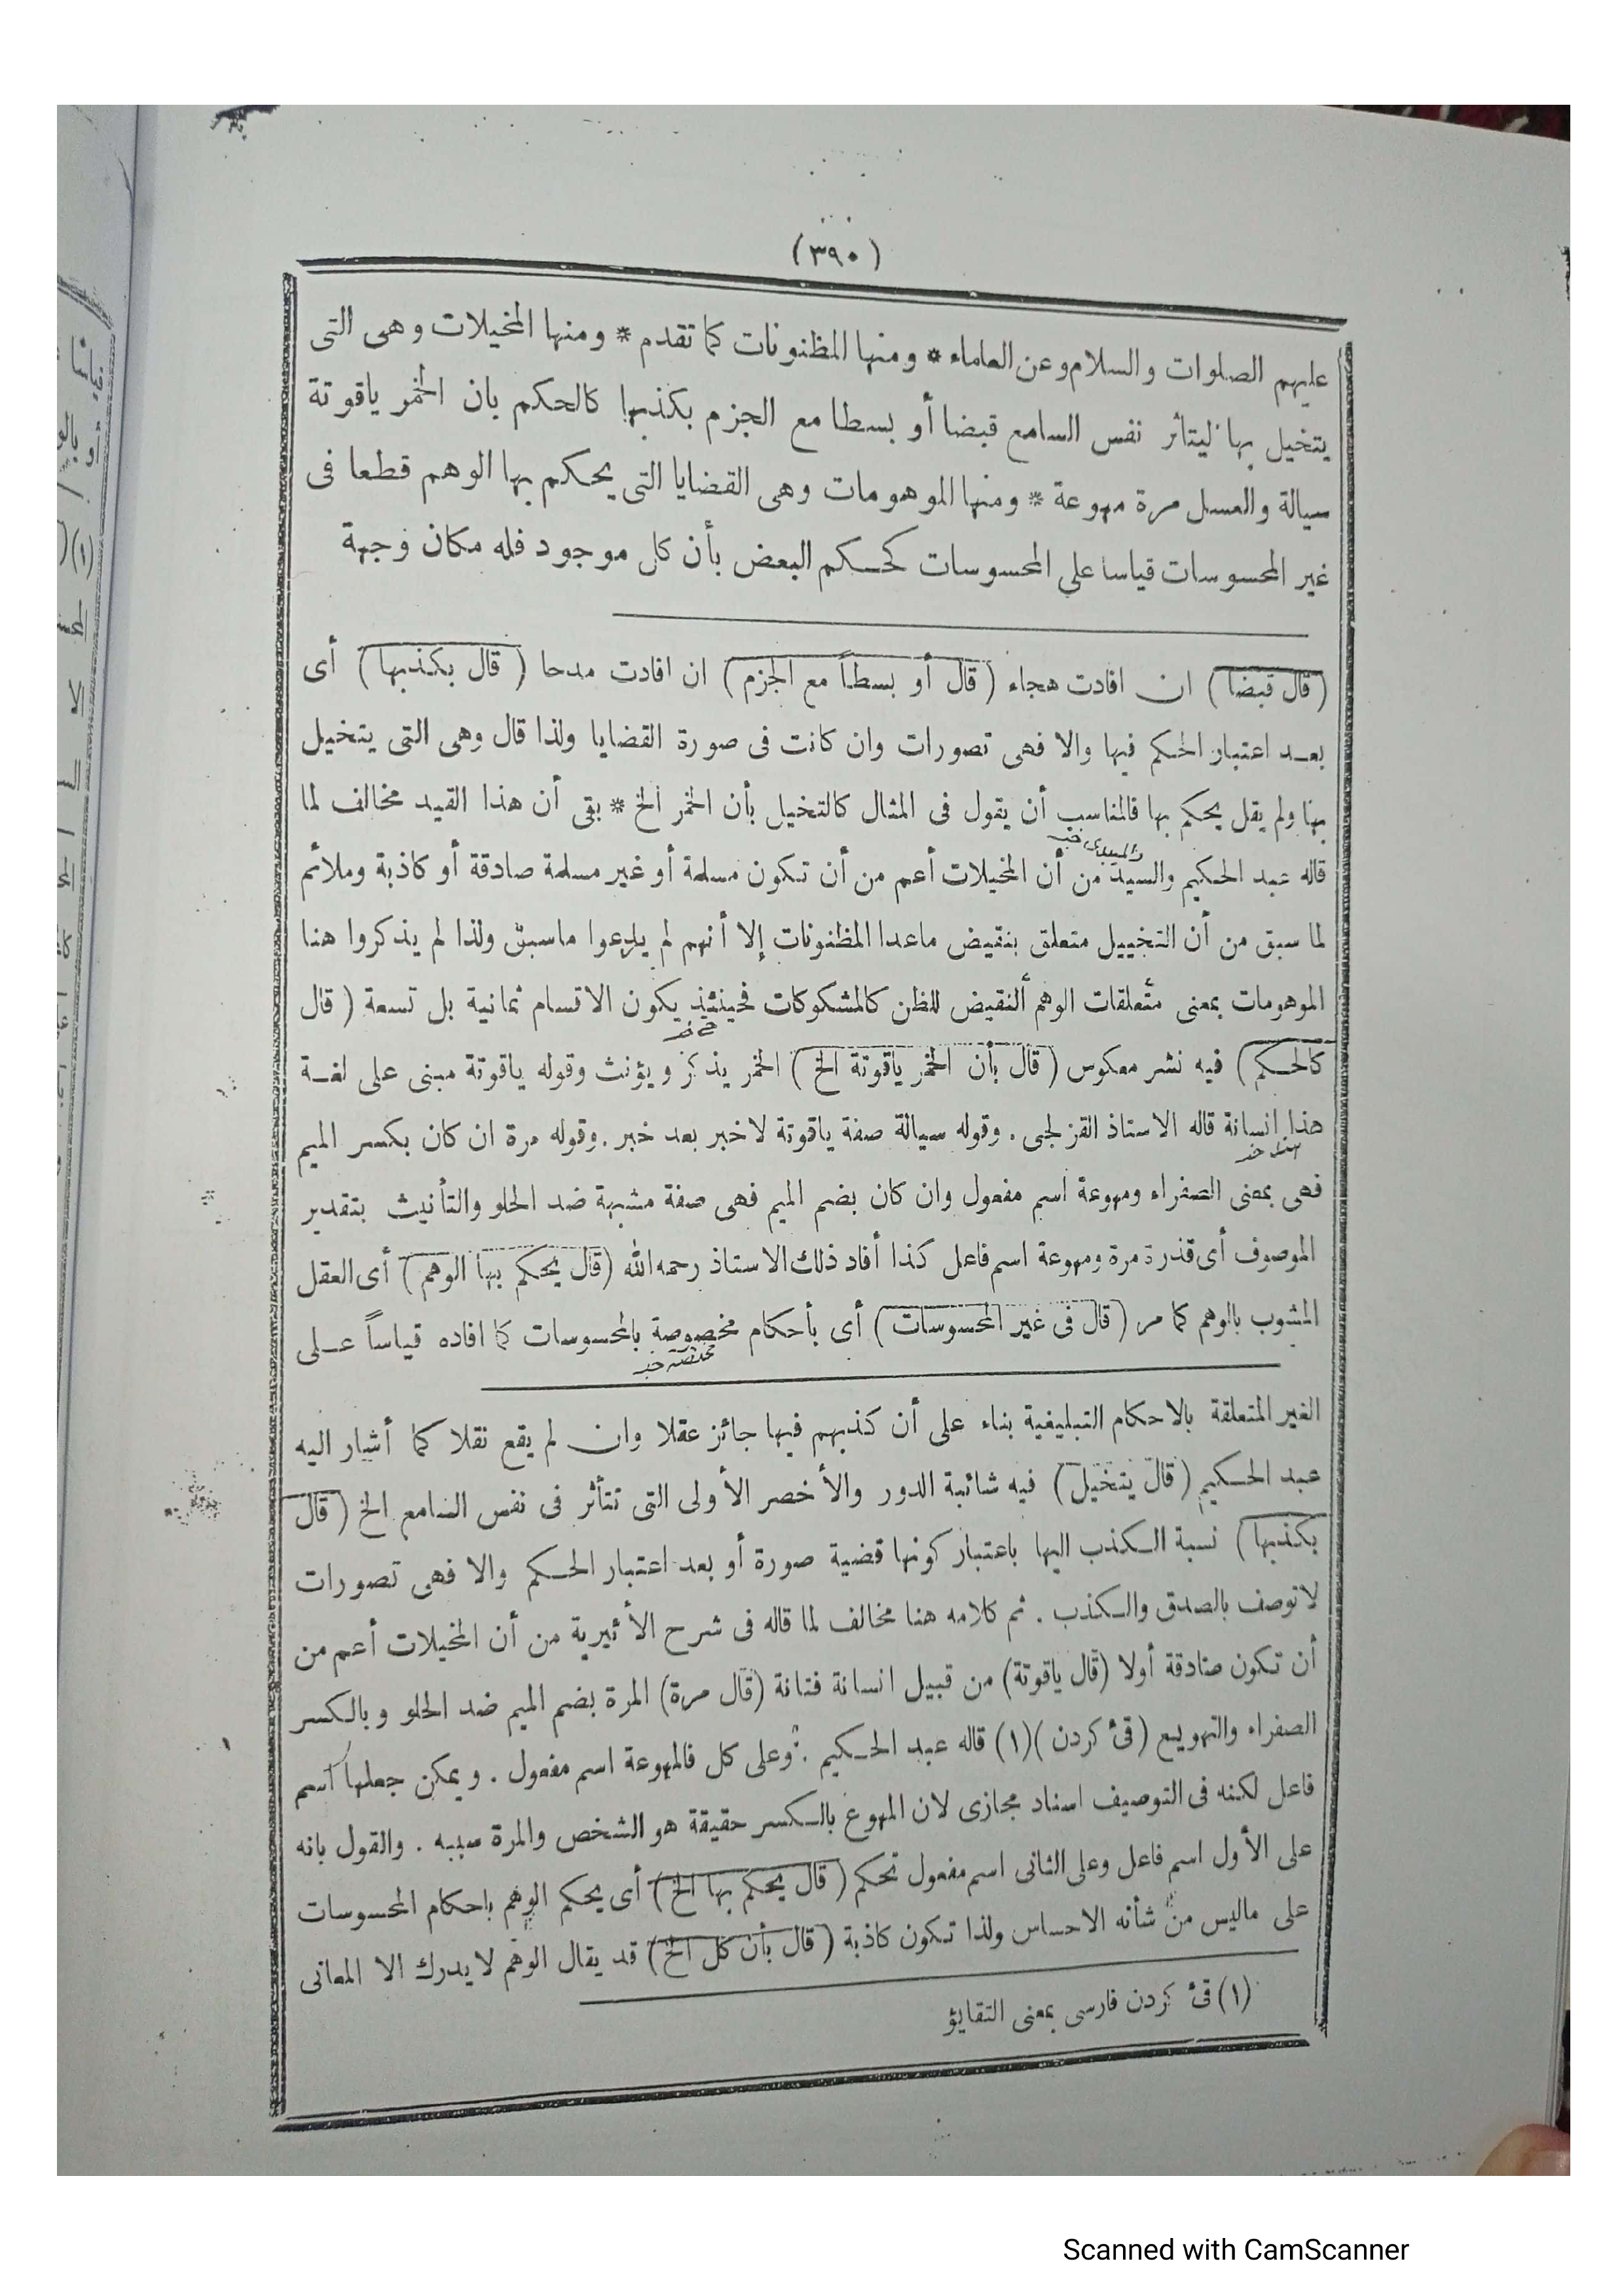 (٣٩٠)
عليهم الصلوات والسلام وعن العلماء * ومنها المظنونات كما تقدم * ومنها المخيلات وهى التى
يتخيل بها ليتأثر نفس السامع قبضا أو بسطا مع الجزم بكذبها كالحكم بان الخمر ياقوتة
سيالة والعسل مرة مهوعة * ومنها الموهومات وهى القضايا التى يحكم بها الوهم قطعا فى
غير المحسوسات قياسا على المحسوسات كحكم البعض بأن كل موجود فله مكان وجهة
(قال قبضا) ان افادت هجاء (قال أو بسطاً مع الجزم) ان افادت مدحا (قال بكذبها) أى
بعد اعتبار الحكم فيها والا فهى تصورات وان كانت فى صورة القضايا ولذا قال وهى التى يتخيل
بها ولم يقل يحكم بها فالمناسب أن يقول فى المثال كالتخيل بأن الخمر الخ * بقى أن هذا القيد مخالف لما
قاله عبد الحكيم والسيد من أن المخيلات أعم من أن تكون مسلمة أو غير مسلمة صادقة أو كاذبة وملائم
لما سبق من أن التخييل متعلق بنقيض ماعدا المظنونات إلا أنهم لم يدعوا ماسبق ولذا لم يذكروا هنا
الموهومات بمعنى متعلقات الوهم النقيض للظن كالمشكوكات فحينئذ يكون الاقسام ثمانية بل تسعة (قال
كالحكم) فيه نشر معكوس (قال بأن الخمر ياقوتة الخ) الخمر يذكر ويؤنث وقوله ياقوتة مبنى على لغة
هذا انسانة قاله الاستاذ القزلجى . وقوله سيالة صفة ياقوتة لاخبر بعد خبر . وقوله مرة ان كان بكسر الميم
فهى بمعنى الصفراء ومهوعة اسم مفعول وان كان بضم الميم فهى صفة مشبهة ضد الحلو والتأنيث بتقدير
الموصوف أى قذرة مرة ومهوعة اسم فاعل كذا أفاد ذلك الاستاذ رحمه الله (قال يحكم بها الوهم) أى العقل
المشوب بالوهم كما مر (قال فى غير المحسوسات) أى بأحكام مخصوصة بالمحسوسات كما افاده قياساً على
الغير المتعلقة بالاحكام التبليغية بناء على أن كذبهم فيها جائز عقلا وان لم يقع نقلا كما أشار اليه
عبد الحكيم (قال يتخيل) فيه شائبة الدور والأخصر الأولى التى تتأثر فى نفس السامع الخ (قال
بكذبها) نسبة الكذب اليها باعتبار كونها قضية صورة أو بعد اعتبار الحكم والا فهى تصورات
لاتوصف بالصدق والكذب . ثم كلامه هنا مخالف لما قاله فى شرح الأثيرية من أن المخيلات أعم من
أن تكون صادقة أولا (قال ياقوتة) من قبيل انسانة فتانة (قال مرة) المرة بضم الميم ضد الحلو وبالكسر
الصفراء والتهويع (قئ كردن) (١) قاله عبد الحكيم . وعلى كل فالمهوعة اسم مفعول . ويمكن جعلها اسم
فاعل لكنه فى التوصيف اسناد مجازى لان المهوع بالكسر حقيقة هو الشخص والمرة سببه . والقول بانه
على الأول اسم فاعل وعلى الثانى اسم مفعول تحكم (قال يحكم بها الخ) أى يحكم الوهم باحكام المحسوسات
على ماليس من شأنه الاحساس ولذا تكون كاذبة (قال بأن كل الخ) قد يقال الوهم لا يدرك الا المعانى
(١) قئ كردن فارسى بمعنى التقايؤ
Scanned with CamScanner